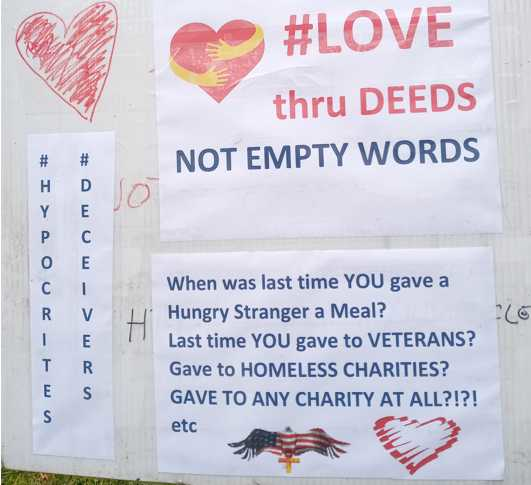 #LOVE
thru DEEDS
NOT EMPTY WORDS
#HYPOCRITES
#DECEIVERS
When was last time YOU gave a
Hungry Stranger a Meal?
Last time YOU gave to VETERANS?
Gave to HOMELESS CHARITIES?
GAVE TO ANY CHARITY AT ALL?!?!
etc